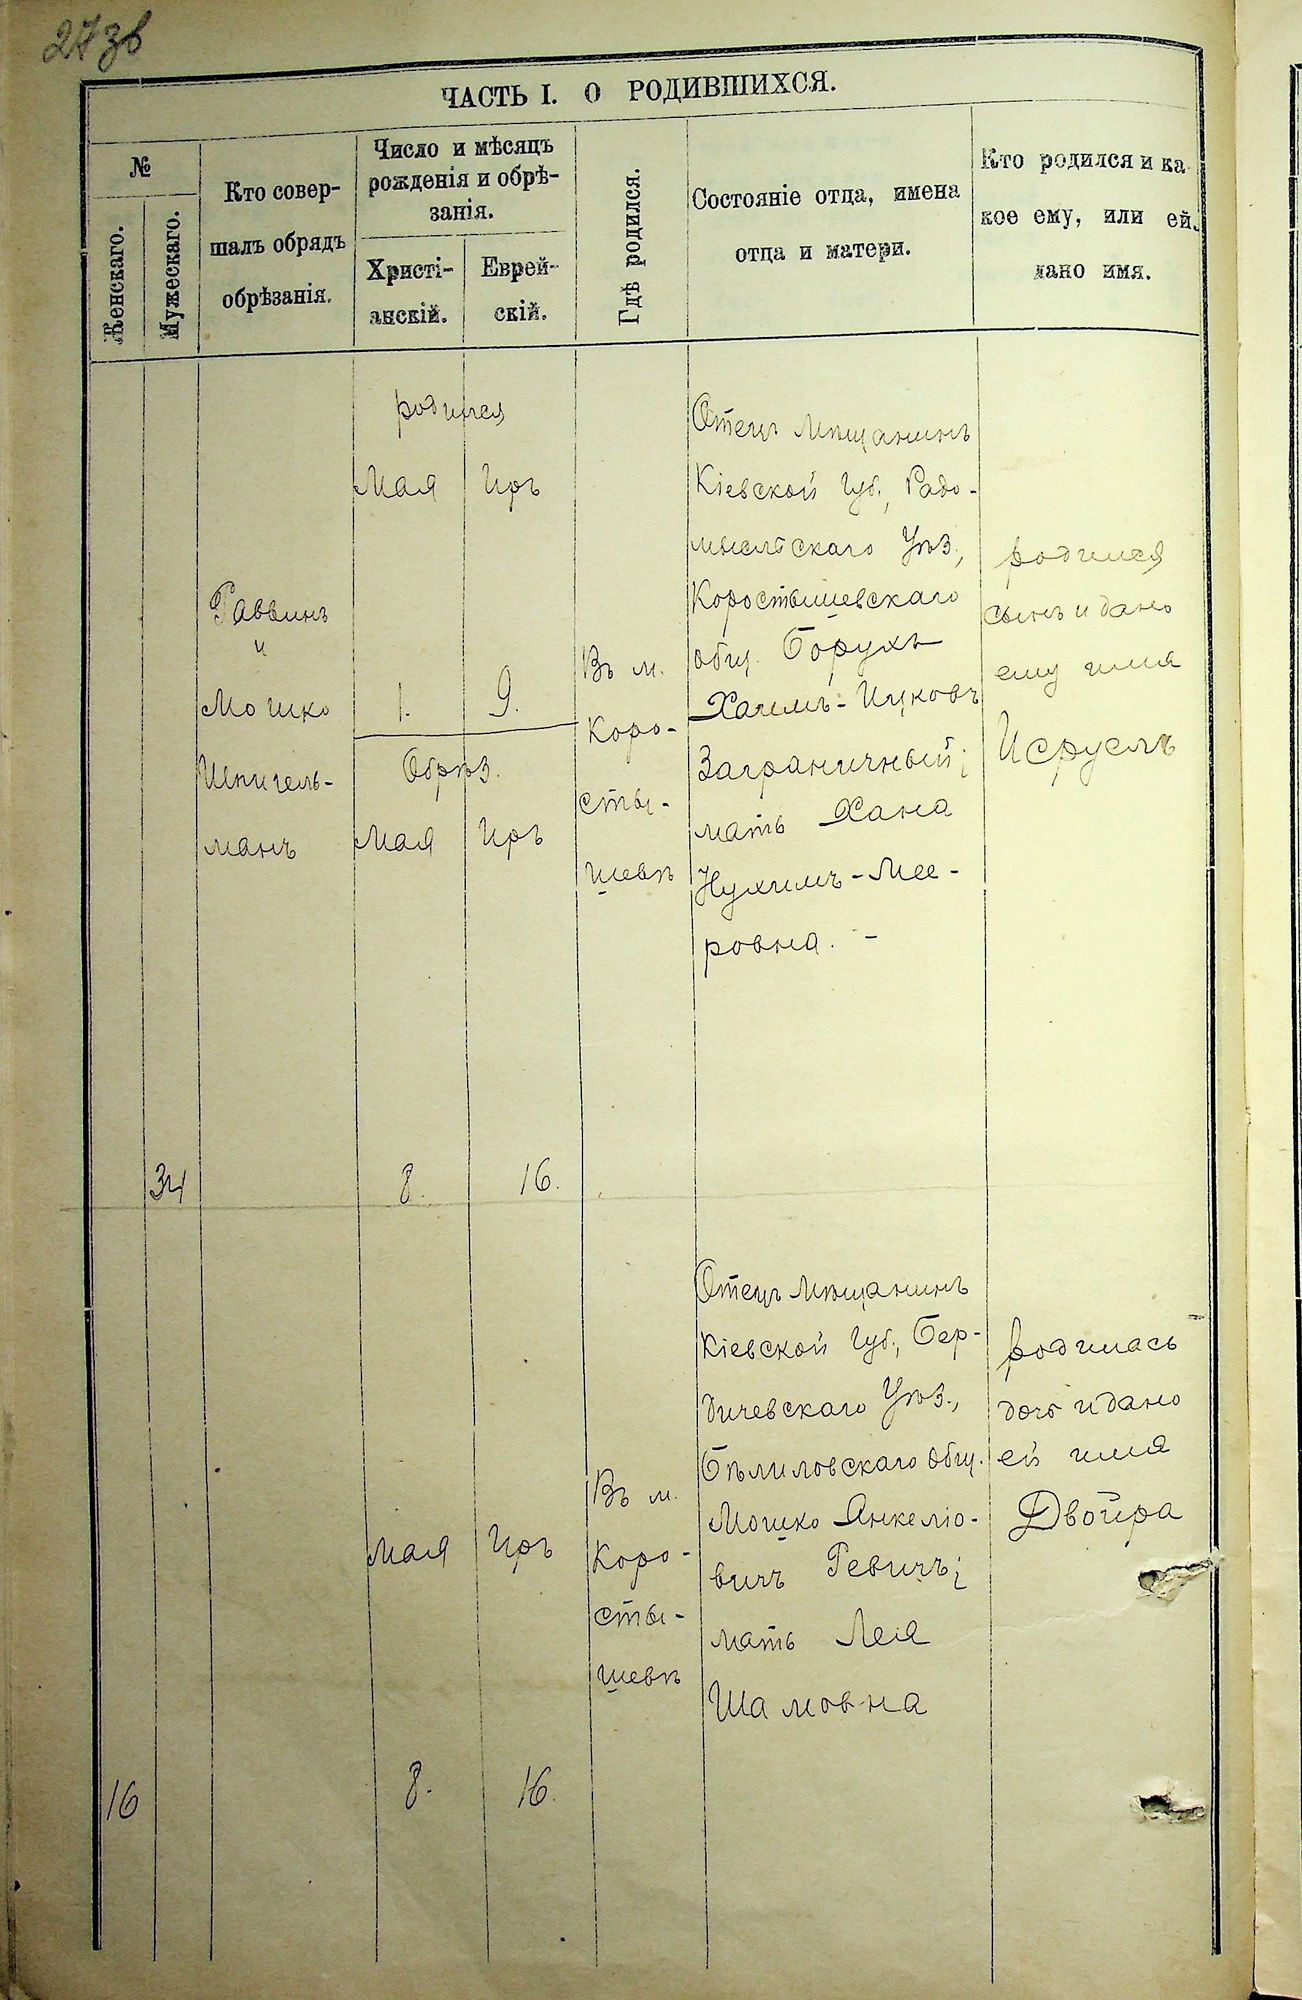 27 зв
ЧАСТЬ I. О РОДИВШИХСЯ.
№
Женскаго.
Мужескаго.
Кто совер-
шалъ обрядъ
обрѣзанія.
Число и мѣсяцъ
рожденія и обрѣ-
занія.
Христі-
анскій.
Еврей-
скій.
Гдѣ родился.
Состояніе отца, имена
отца и матери.
Кто родился и ка
кое ему, или ей
дано имя.
34
Раввинъ
и
Мошко
Шпигель-
манъ
родился
Мая Иръ
1. 9.
Обрѣз.
Мая Иръ
8. 16.
Въ м.
Коро-
сты-
шевѣ
Отецъ мѣщанинъ
Кіевской Губ., Радо-
мысльскаго Уѣз.,
Коростышевскаго
общ. Борухъ
Хаимъ-Ицковъ
Заграничный;
мать Хана
Нухимъ-Мее-
ровна. -
родился
сынъ и дано
ему имя
Исруель
16
Мая Иръ
8. 16.
Въ м.
Коро-
сты-
шевѣ
Отецъ мѣщанинъ
Кіевской Губ., Бер-
дичевскаго Уѣз.,
Бѣлиловскаго общ.
Мошко Янкеліо-
вичъ Ревичъ;
мать Лея
Шамовна
родилась
дочь и дано
ей имя
Двойра